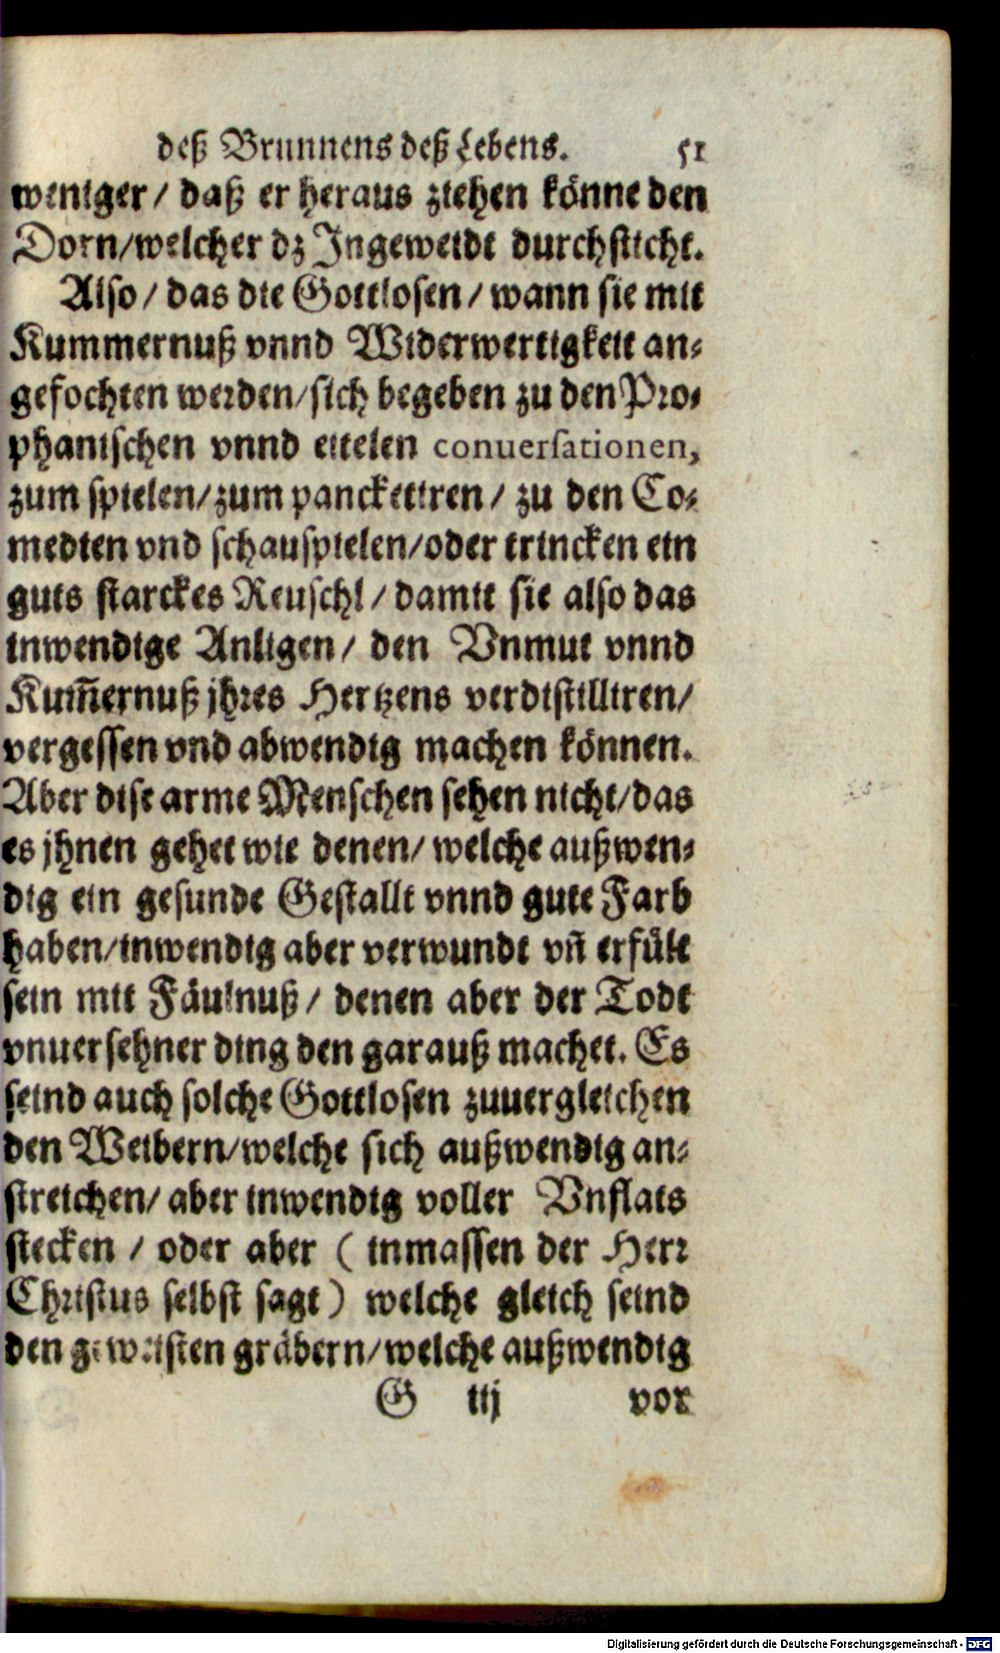 deß Brunnens deß Lebens. 51
weniger / daß er heraus ziehen könne den
Dorn/welcher dz Ingeweidt durchsticht.
Also / das die Gottlosen / wann sie mit
Kummernuß vnnd Widerwertigkeit an-
gefochten werden/sich begeben zu den Pro-
phanischen vnnd eitelen conuersationen,
zum spielen/zum panckettiren / zu den Co-
medien vnd schauspielen/oder trincken ein
guts starckes Reuschl / damit sie also das
inwendige Anligen / den Vnmut vnnd
Kum̃ernuß jhres Hertzens verdistilliren/
vergessen vnd abwendig machen können.
Aber dise arme Menschen sehen nicht/das
es jhnen gehet wie denen/ welche außwen-
dig ein gesunde Gestallt vnnd gute Farb
haben/inwendig aber verwundt vñ erfült
sein mit Fäulnuß / denen aber der Todt
vnuersehner ding den garauß machet. Es
seind auch solche Gottlosen zuuergleichen
den Weibern/welche sich außwendig an-
streichen/ aber inwendig voller Vnflats
stecken / oder aber ( inmassen der Herr
Christus selbst sagt ) welche gleich seind
den geweisten gräbern/welche außwendig
G iij vor
Digitalisierung gefördert durch die Deutsche Forschungsgemeinschaft - DFG